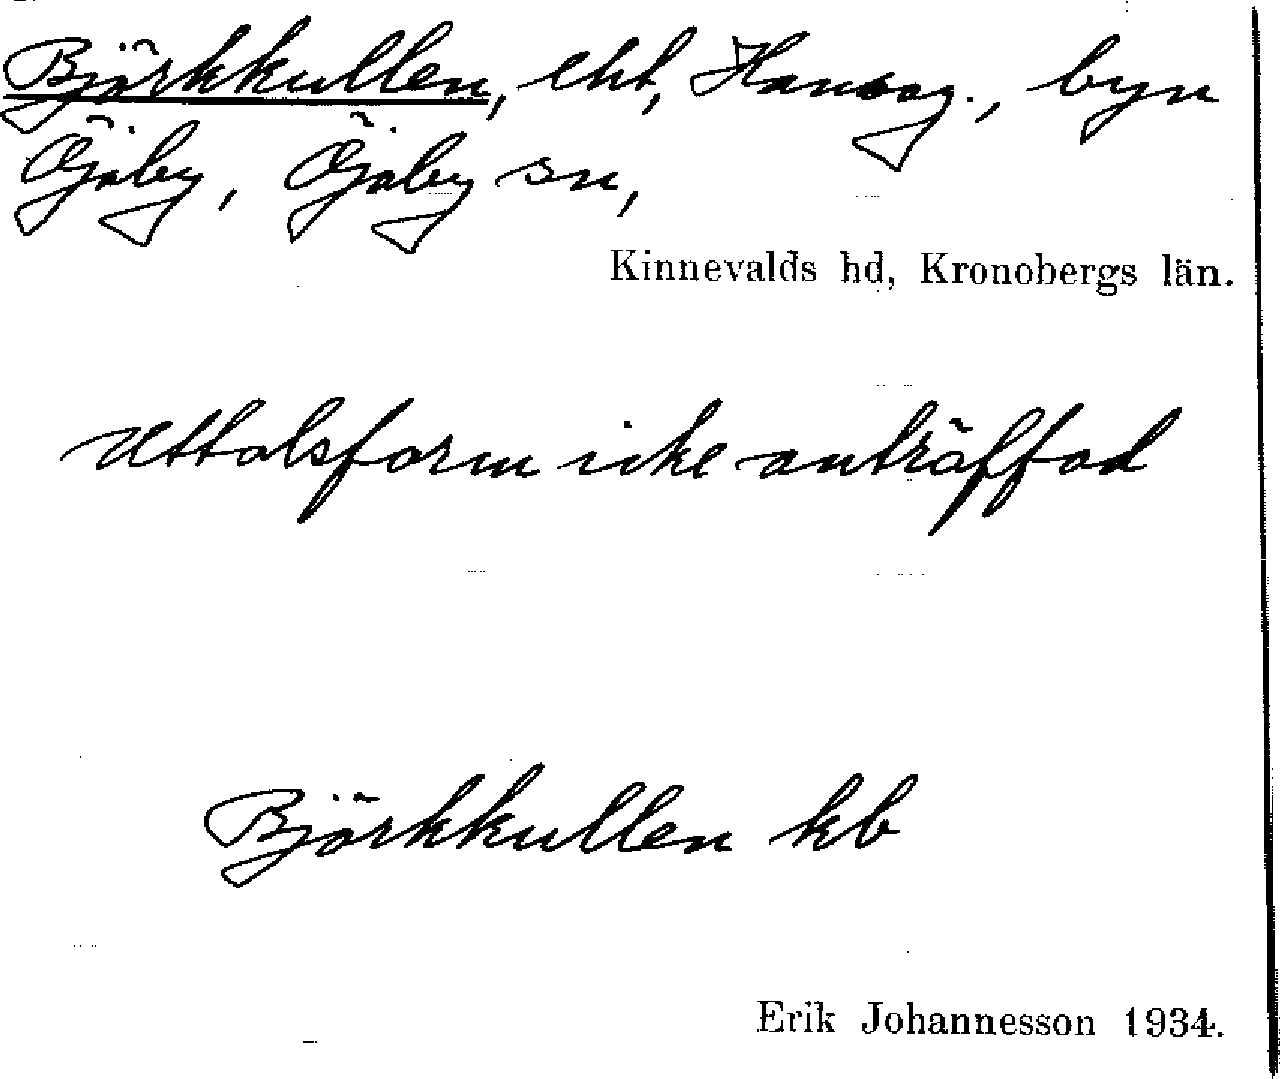 Björkkullen, lht, Hansag., byn
Öjaby, Öjaby sn,
Kinnevalds hd, Kronobergs län.
Uttalsform icke anträffad
Björkkullen kb
Erik Johannesson 1934.